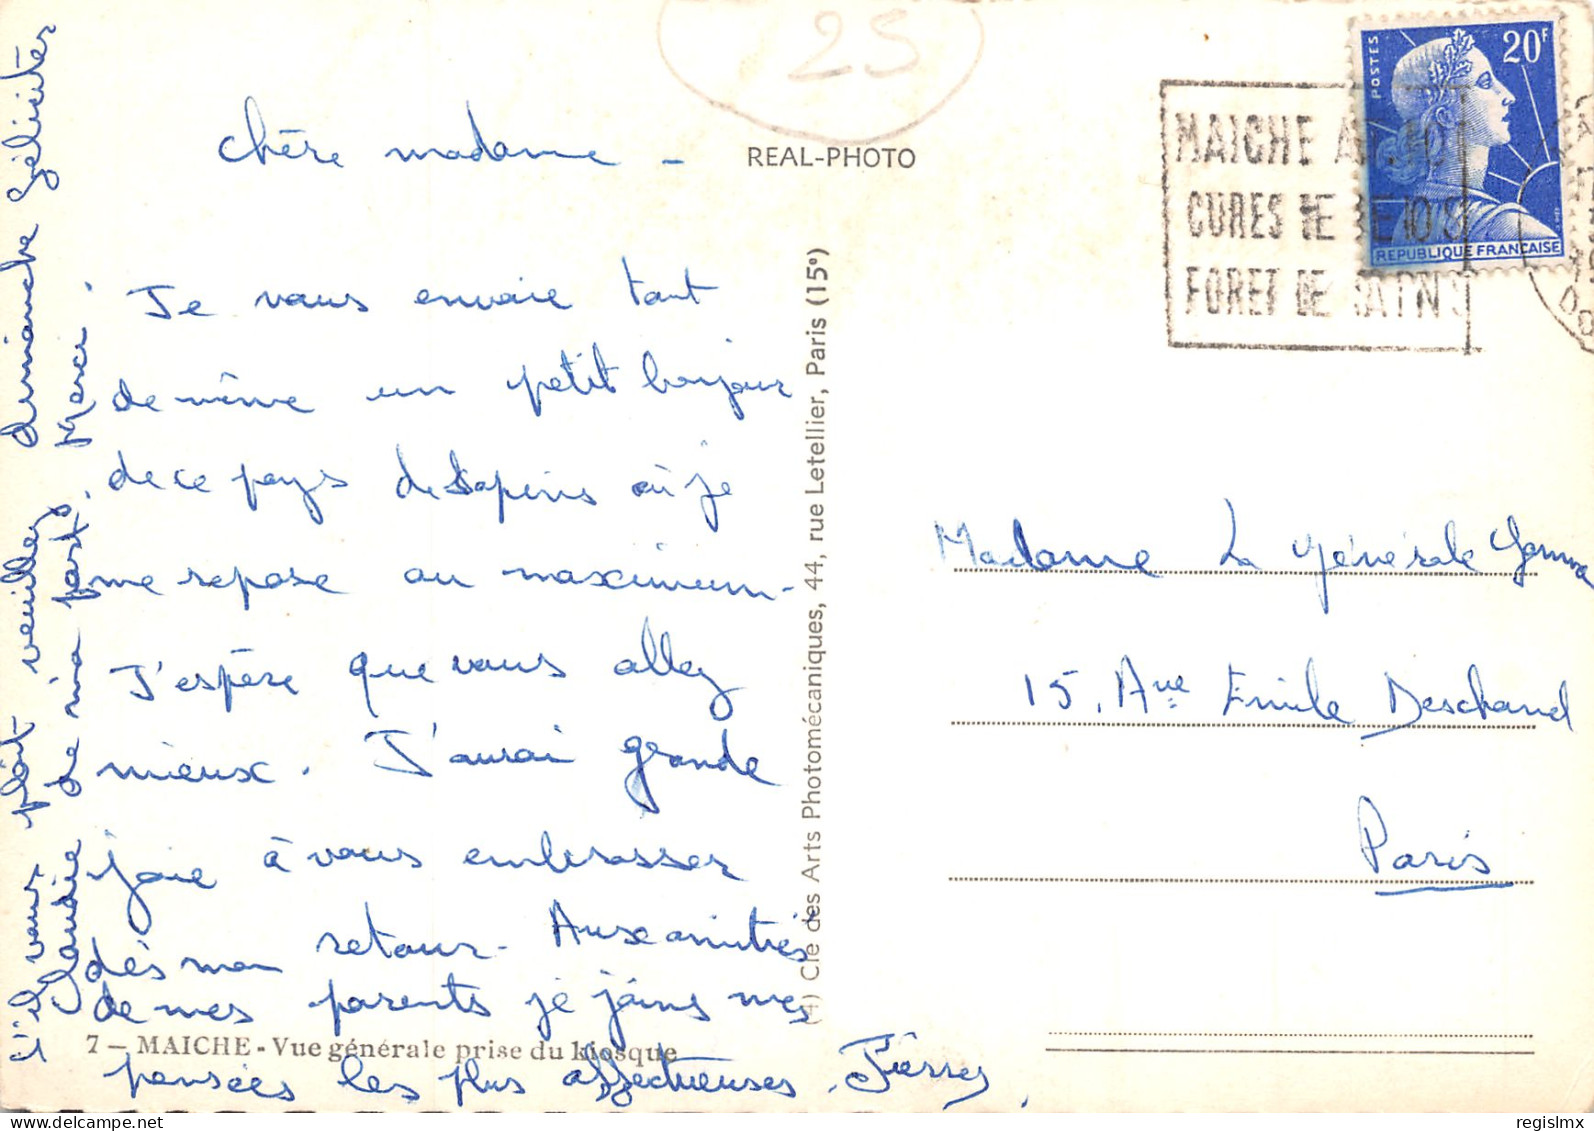 25
chère madame -
Je vous envoie tant
de même un petit bonjour
de ce pays de Sapins où je
me repose au maximum -
J'espère que vous allez
mieux. J'aurai grande
joie à vous embrasser
dès mon retour - Aux amitiés
de mes parents je joins mes
pensées les plus affectueuses.
S'il vous plaît veuillez dimanche féliciter
Claudie de ma part, Merci.
7 - MAICHE - Vue générale prise du kiosque
REAL-PHOTO
(4) Cie des Arts Photomécaniques, 44, rue Letellier, Paris (15e)
MAICHE
CURES DE REPOS
FORET DE SAPINS
POSTES
20F
REPUBLIQUE FRANCAISE
Madame La Générale
15, Ave Emile Deschanel
Paris
regislmx